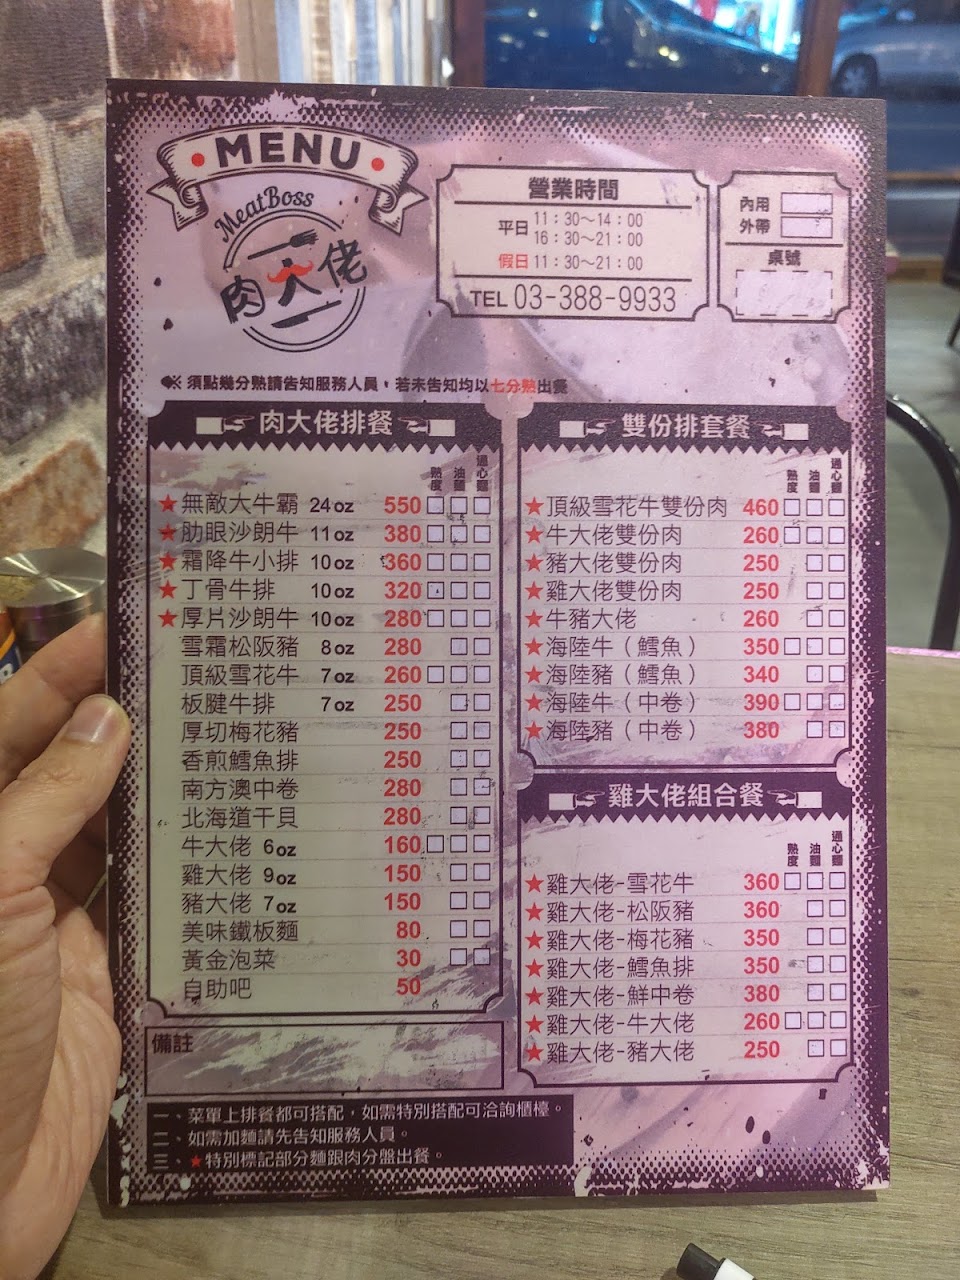 MENU
MeatBoss
肉大佬
營業時間
平日 11：30～14：00
16：30～21：00
假日 11：30～21：00
TEL 03-388-9933
內用
外帶
桌號
※ 須點幾分熟請告知服務人員，若未告知均以七分熟出餐
肉大佬排餐
熟度 油麵 通心麵
★無敵大牛霸 24oz 550
★肋眼沙朗牛 11oz 380
★霜降牛小排 10oz 360
★丁骨牛排 10oz 320
★厚片沙朗牛 10oz 280
雪霜松阪豬 8oz 280
頂級雪花牛 7oz 260
板腱牛排 7oz 250
厚切梅花豬 250
香煎鱈魚排 250
南方澳中卷 280
北海道干貝 280
牛大佬 6oz 160
雞大佬 9oz 150
豬大佬 7oz 150
美味鐵板麵 80
黃金泡菜 30
自助吧 50
備註
雙份排套餐
熟度 油麵 通心麵
★頂級雪花牛雙份肉 460
★牛大佬雙份肉 260
★豬大佬雙份肉 250
★雞大佬雙份肉 250
★牛豬大佬 260
★海陸牛（鱈魚） 350
★海陸豬（鱈魚） 340
★海陸牛（中卷） 390
★海陸豬（中卷） 380
雞大佬組合餐
熟度 油麵 通心麵
★雞大佬-雪花牛 360
★雞大佬-松阪豬 360
★雞大佬-梅花豬 350
★雞大佬-鱈魚排 350
★雞大佬-鮮中卷 380
★雞大佬-牛大佬 260
★雞大佬-豬大佬 250
一、菜單上排餐都可搭配，如需特別搭配可洽詢櫃檯。
二、如需加麵請先告知服務人員。
三、★特別標記部分麵跟肉分盤出餐。